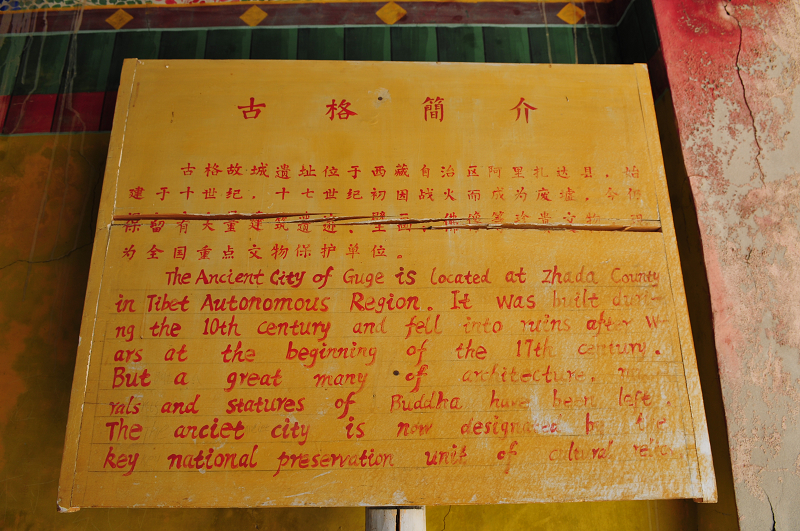 古格簡介
古格故城遗址位于西藏自治区阿里扎达县，始
建于十世纪，十七世纪初因战火而成为废墟，今仍
保留有大量建筑遗迹、壁画、佛像等珍贵文物，现
为全国重点文物保护单位。
The Ancient City of Guge is located at Zhada County
in Tibet Autonomous Region. It was built duri-
ng the 10th century and fell into ruins after w-
ars at the beginning of the 17th century.
But a great many of architecture, mu-
rals and statures of Buddha have been left.
The anciet city is now designated by the
key national preservation unit of cultural relic